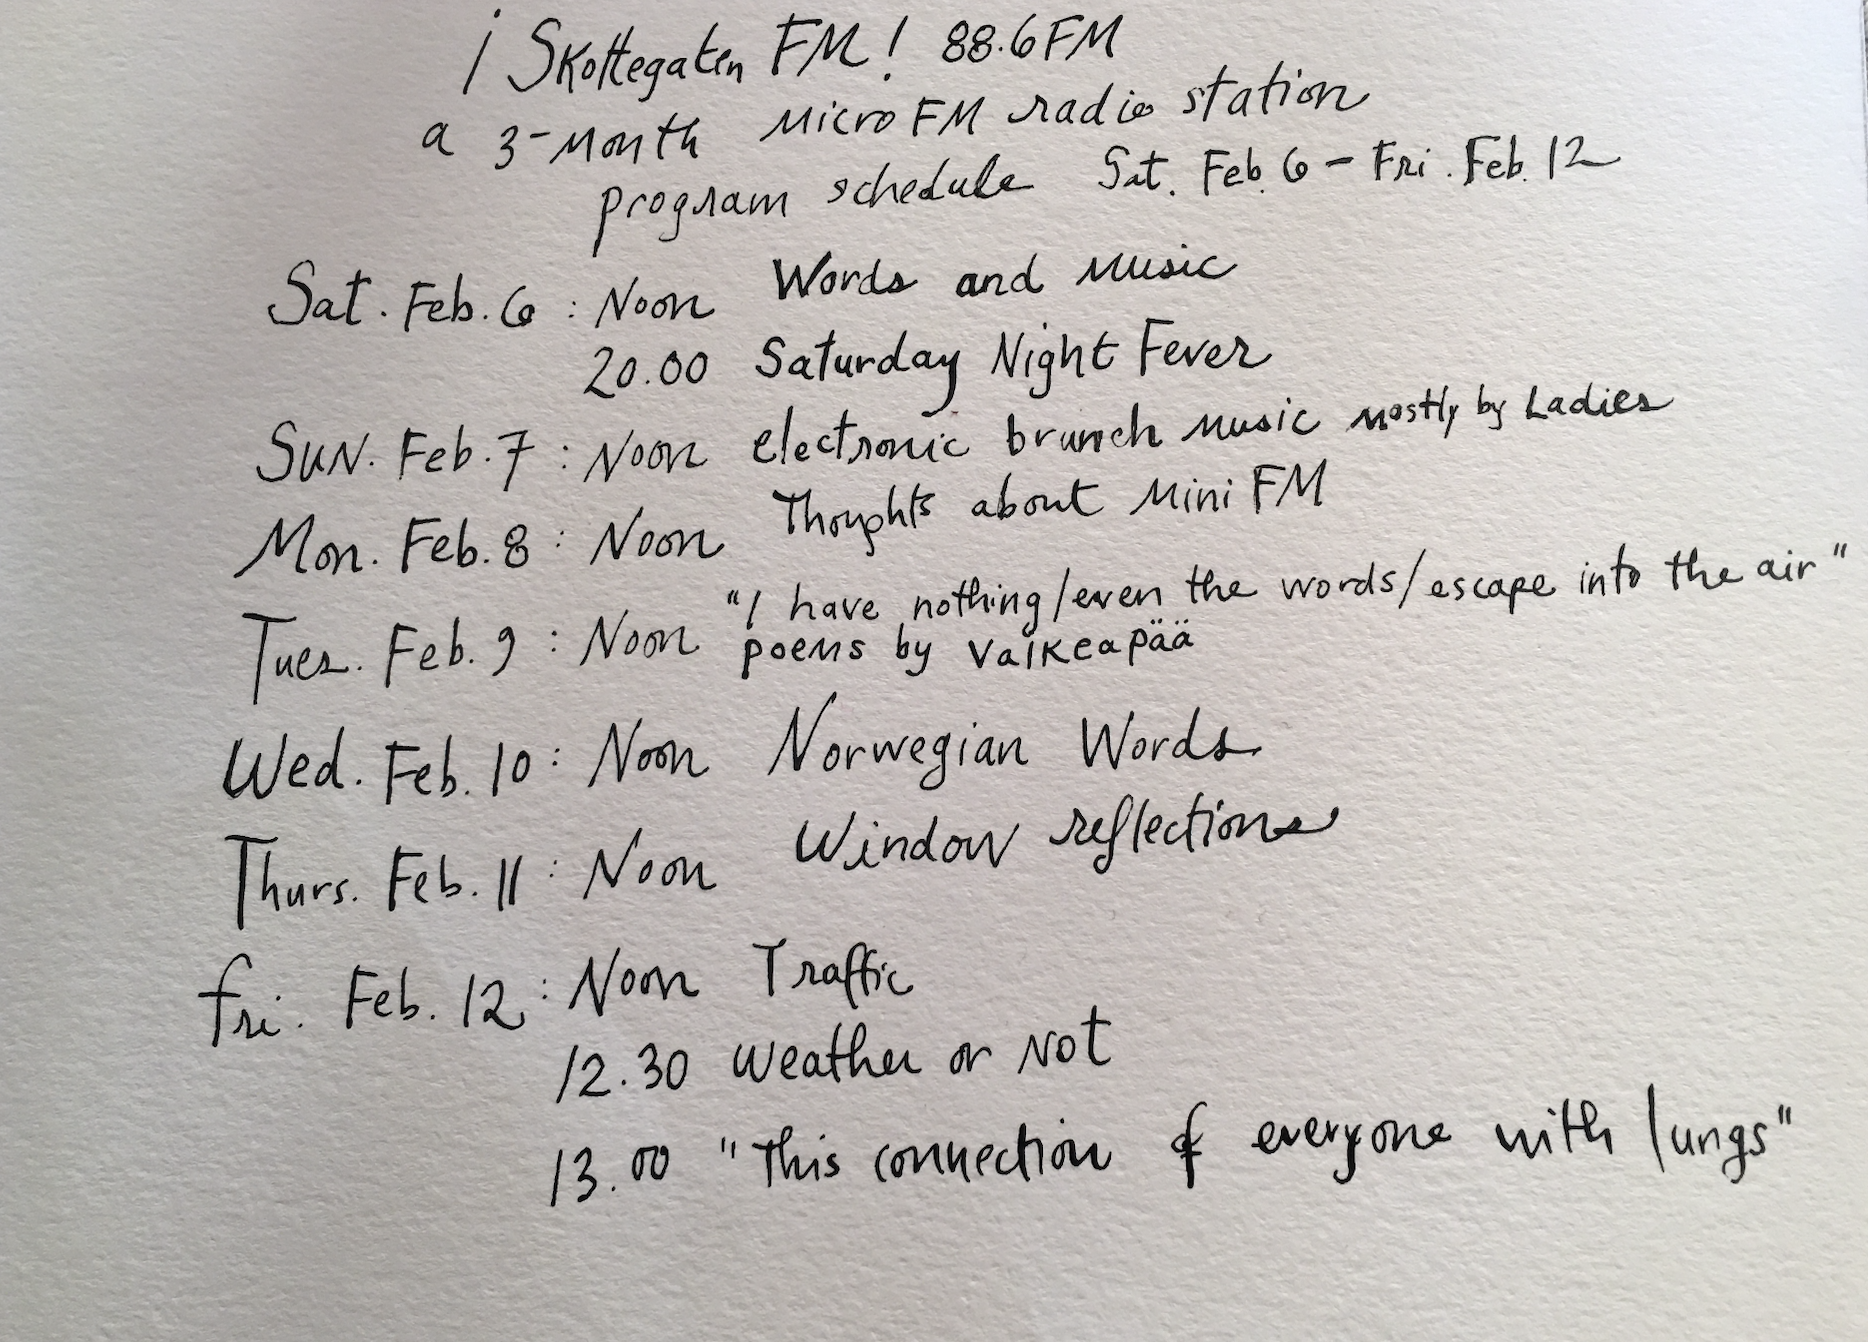 ¡ Skottegaten FM! 88.6FM
a 3-Month Micro FM radio station
program schedule Sat. Feb. 6 - Fri. Feb. 12
Sat. Feb. 6 : Noon Words and Music
20.00 Saturday Night Fever
Sun. Feb. 7 : Noon electronic brunch music mostly by Ladies
Mon. Feb. 8 : Noon Thoughts about Mini FM
Tues. Feb. 9 : Noon "I have nothing/even the words/escape into the air"
poems by Valkeapää
Wed. Feb. 10 : Noon Norwegian Words
Thurs. Feb. 11 : Noon Window reflections
Fri. Feb. 12 : Noon Traffic
12.30 Weather or Not
13.00 "This connection of everyone with lungs"